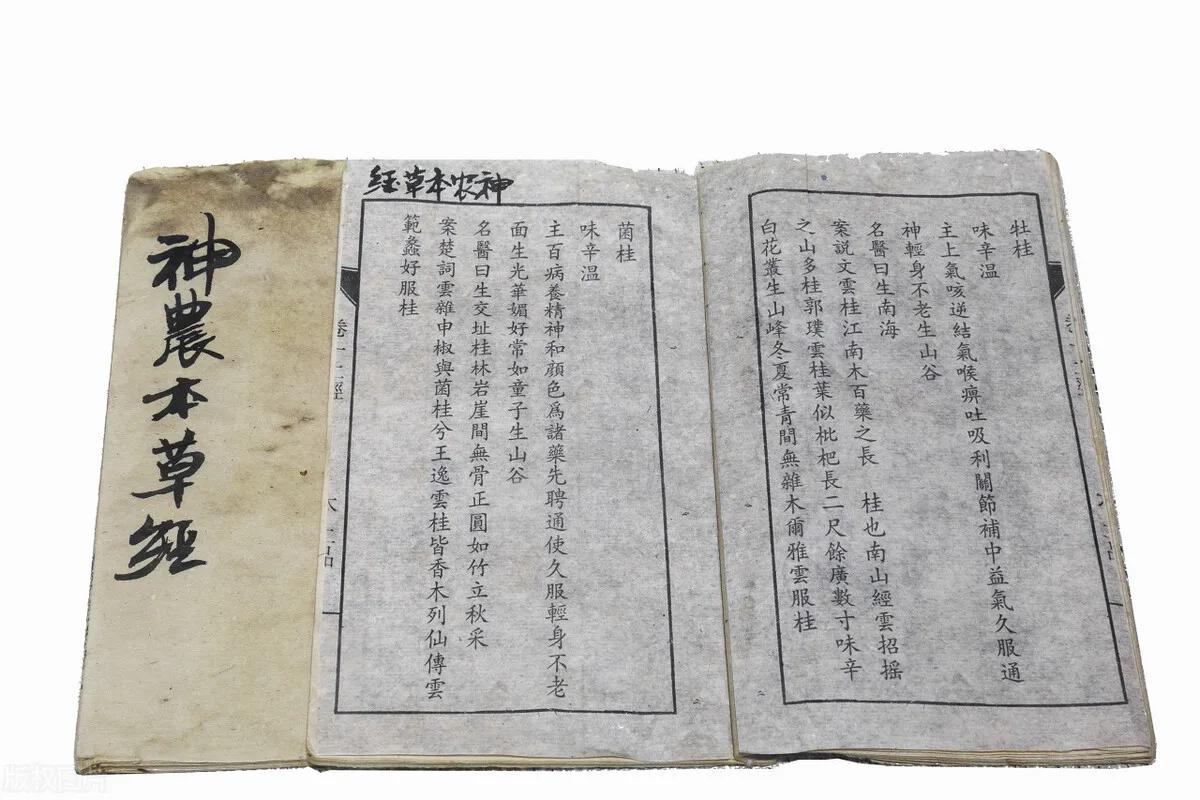 神農本草經
牡桂
味辛温
主上氣咳逆結氣喉痹吐吸利關節補中益氣久服通
神輕身不老生山谷
名醫曰生南海
案説文雲桂江南木百藥之長 桂也南山經雲招摇
之山多桂郭璞雲桂葉似枇杷長二尺餘廣數寸味辛
白花叢生山峰冬夏常青間無雜木爾雅雲服桂
神农本草经
菌桂
味辛温
主百病養精神和顔色爲諸藥先聘通使久服輕身不老
面生光華媚好常如童子生山谷
名醫曰生交址桂林岩崖間無骨正圓如竹立秋采
案楚詞雲雜申椒與菌桂兮王逸雲桂皆香木列仙傳雲
範蠡好服桂
版权图片